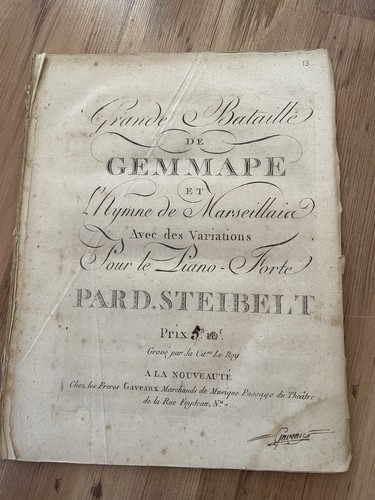 13.
Grande Bataille
DE
GEMMAPE
ET
l'Hymne de Marseillais
Avec des Variations
Pour le Piano-Forte
PAR D. STEIBELT
Prix 5
Gravé par la Cne. Le Roy
A LA NOUVEAUTÉ
Chez les Freres Gaveaux Marchands de Musique Passage du Théâtre
de la Rue Feydeau, No.
Gaveaux